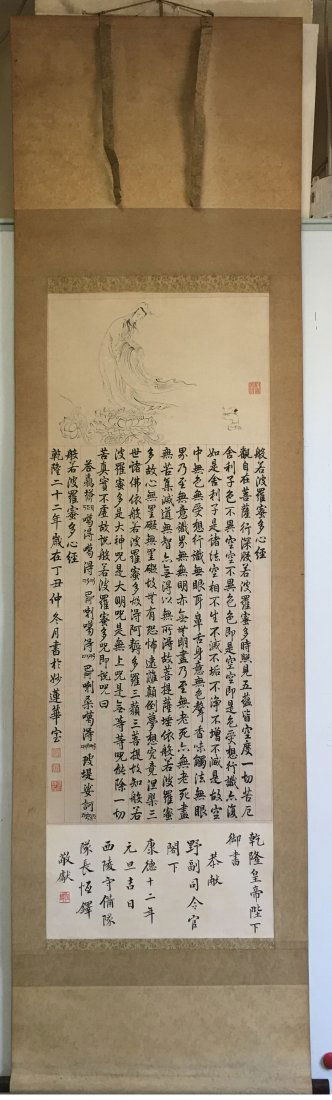 般若波羅蜜多心経
觀自在菩薩行深般若波羅蜜多時照見五蘊皆空度一切苦厄
舍利子色不異空空不異色色即是空空即是色受想行識亦復
如是舍利子是諸法空相不生不滅不垢不淨不增不減是故空
中無色無受想行識無眼耳鼻舌身意無色聲香味觸法無眼
界乃至無意識界無無明亦無無明盡乃至無老死亦無老死盡
無苦集滅道無智亦無得以無所得故菩提薩埵依般若波羅蜜
多故心無罣礙無罣礙故無有恐怖遠離顛倒夢想究竟涅槃三
世諸佛依般若波羅蜜多故得阿耨多羅三藐三菩提故知般若
波羅蜜多是大神咒是大明咒是無上咒是無等等咒能除一切
苦真實不虛故說般若波羅蜜多咒即說咒曰
般若波羅蜜多心経
乾隆二十二年歲在丁丑仲冬月書於妙蓮華室
乾隆皇帝陛下
御書
恭献
野副司令官
閣下
康德十二年
元旦吉日
西陵守備隊
隊長恆鐸
敬獻